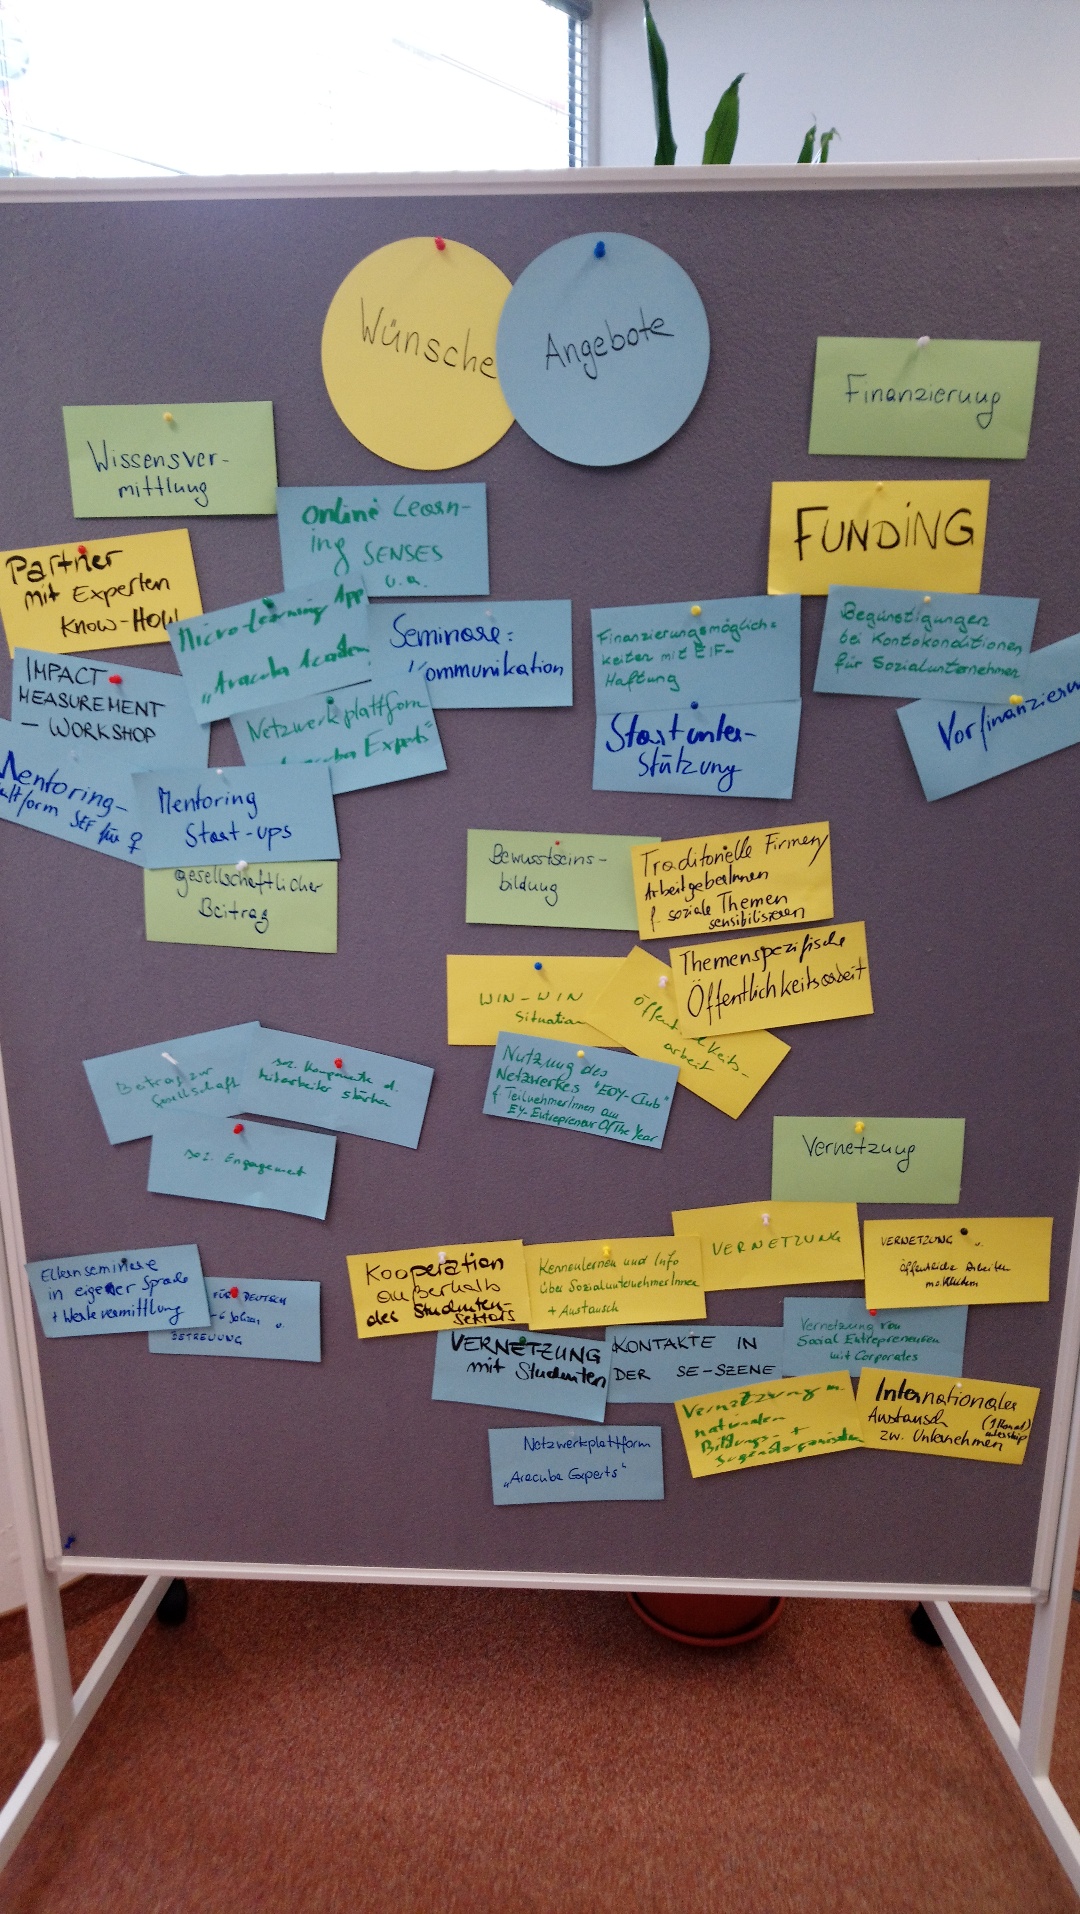 Wünsche
Angebote
Finanzierung
Wissensver-
mittlung
Online Learn-
ing SENSES
u.a.
FUNDiNG
Partner
mit Experten
Know-How
Micro-Learning App
"Aracuba Academ
Seminare:
Kommunikation
Finanzierungsmöglich-
keiten mit EIF-
Haftung
Begünstigungen
bei Kontokonditionen
für Sozialunternehmen
IMPACT
MEASUREMENT
- WORKSHOP
Netzwerkplattform
Experts"
Startunter-
stützung
Vorfinanzierun
Mentoring-
SEF für ♀
Mentoring
Start-ups
gesellschaftlicher
Beitrag
Bewusstseins-
bildung
Traditionelle Firmen/
ArbeitgeberInnen
f. soziale Themen
sensibilisieren
Themenspezifische
Öffentlichkeitsarbeit
WIN-WIN
Situation
Öffen
keits-
arbeit
Nutzung des
Netzwerkes "EOY-Club"
f TeilnehmerInnen am
EY-Entrepreneur Of The Year
Beitrag zur
Gesellschaft
soz. Komponente d.
Mitarbeiter stärken
soz. Engagement
Vernetzung
Elternseminare
in eigener Sprache
+ Wertevermittlung
FÜR DEUTSCH
BETREUUNG
Kooperation
außerhalb
des Studenten-
sektors
Kennenlernen und Info
über SozialunternehmerInnen
+ Austausch
VERNETZUNG
VERNETZUNG u.
VERNETZUNG
mit Studenten
KONTAKTE IN
DER SE-SZENE
Vernetzung von
Social Entrepreneuren
mit Corporates
Vernetzung
nationalen
Bildungs- +
Jugendorganisation
Internationaler
Austausch (1 Monat)
zw. Unternehmen
Netzwerkplattform
"Aracuba Experts"